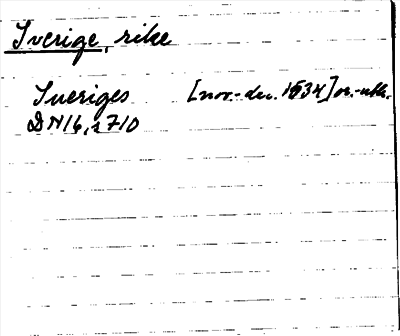 Sverige, rike
Sueriges [nov.-dec. 1534] or.-utk.
DN16, s 710